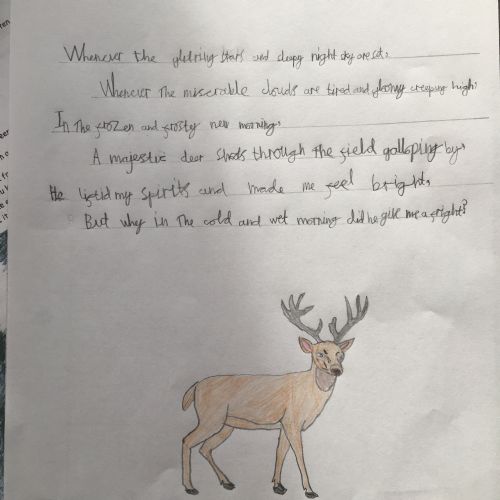 Whenever the glittrily stars and sleepy night sky are set,
Whenever The miserable clouds are tired and gloomy creeping high,
In The frozen and frosty new morning,
A majestic dear shoots through The field galloping by,
He lifted my spirits and made me feel bright,
But why in The cold and wet morning did he give me a fright?